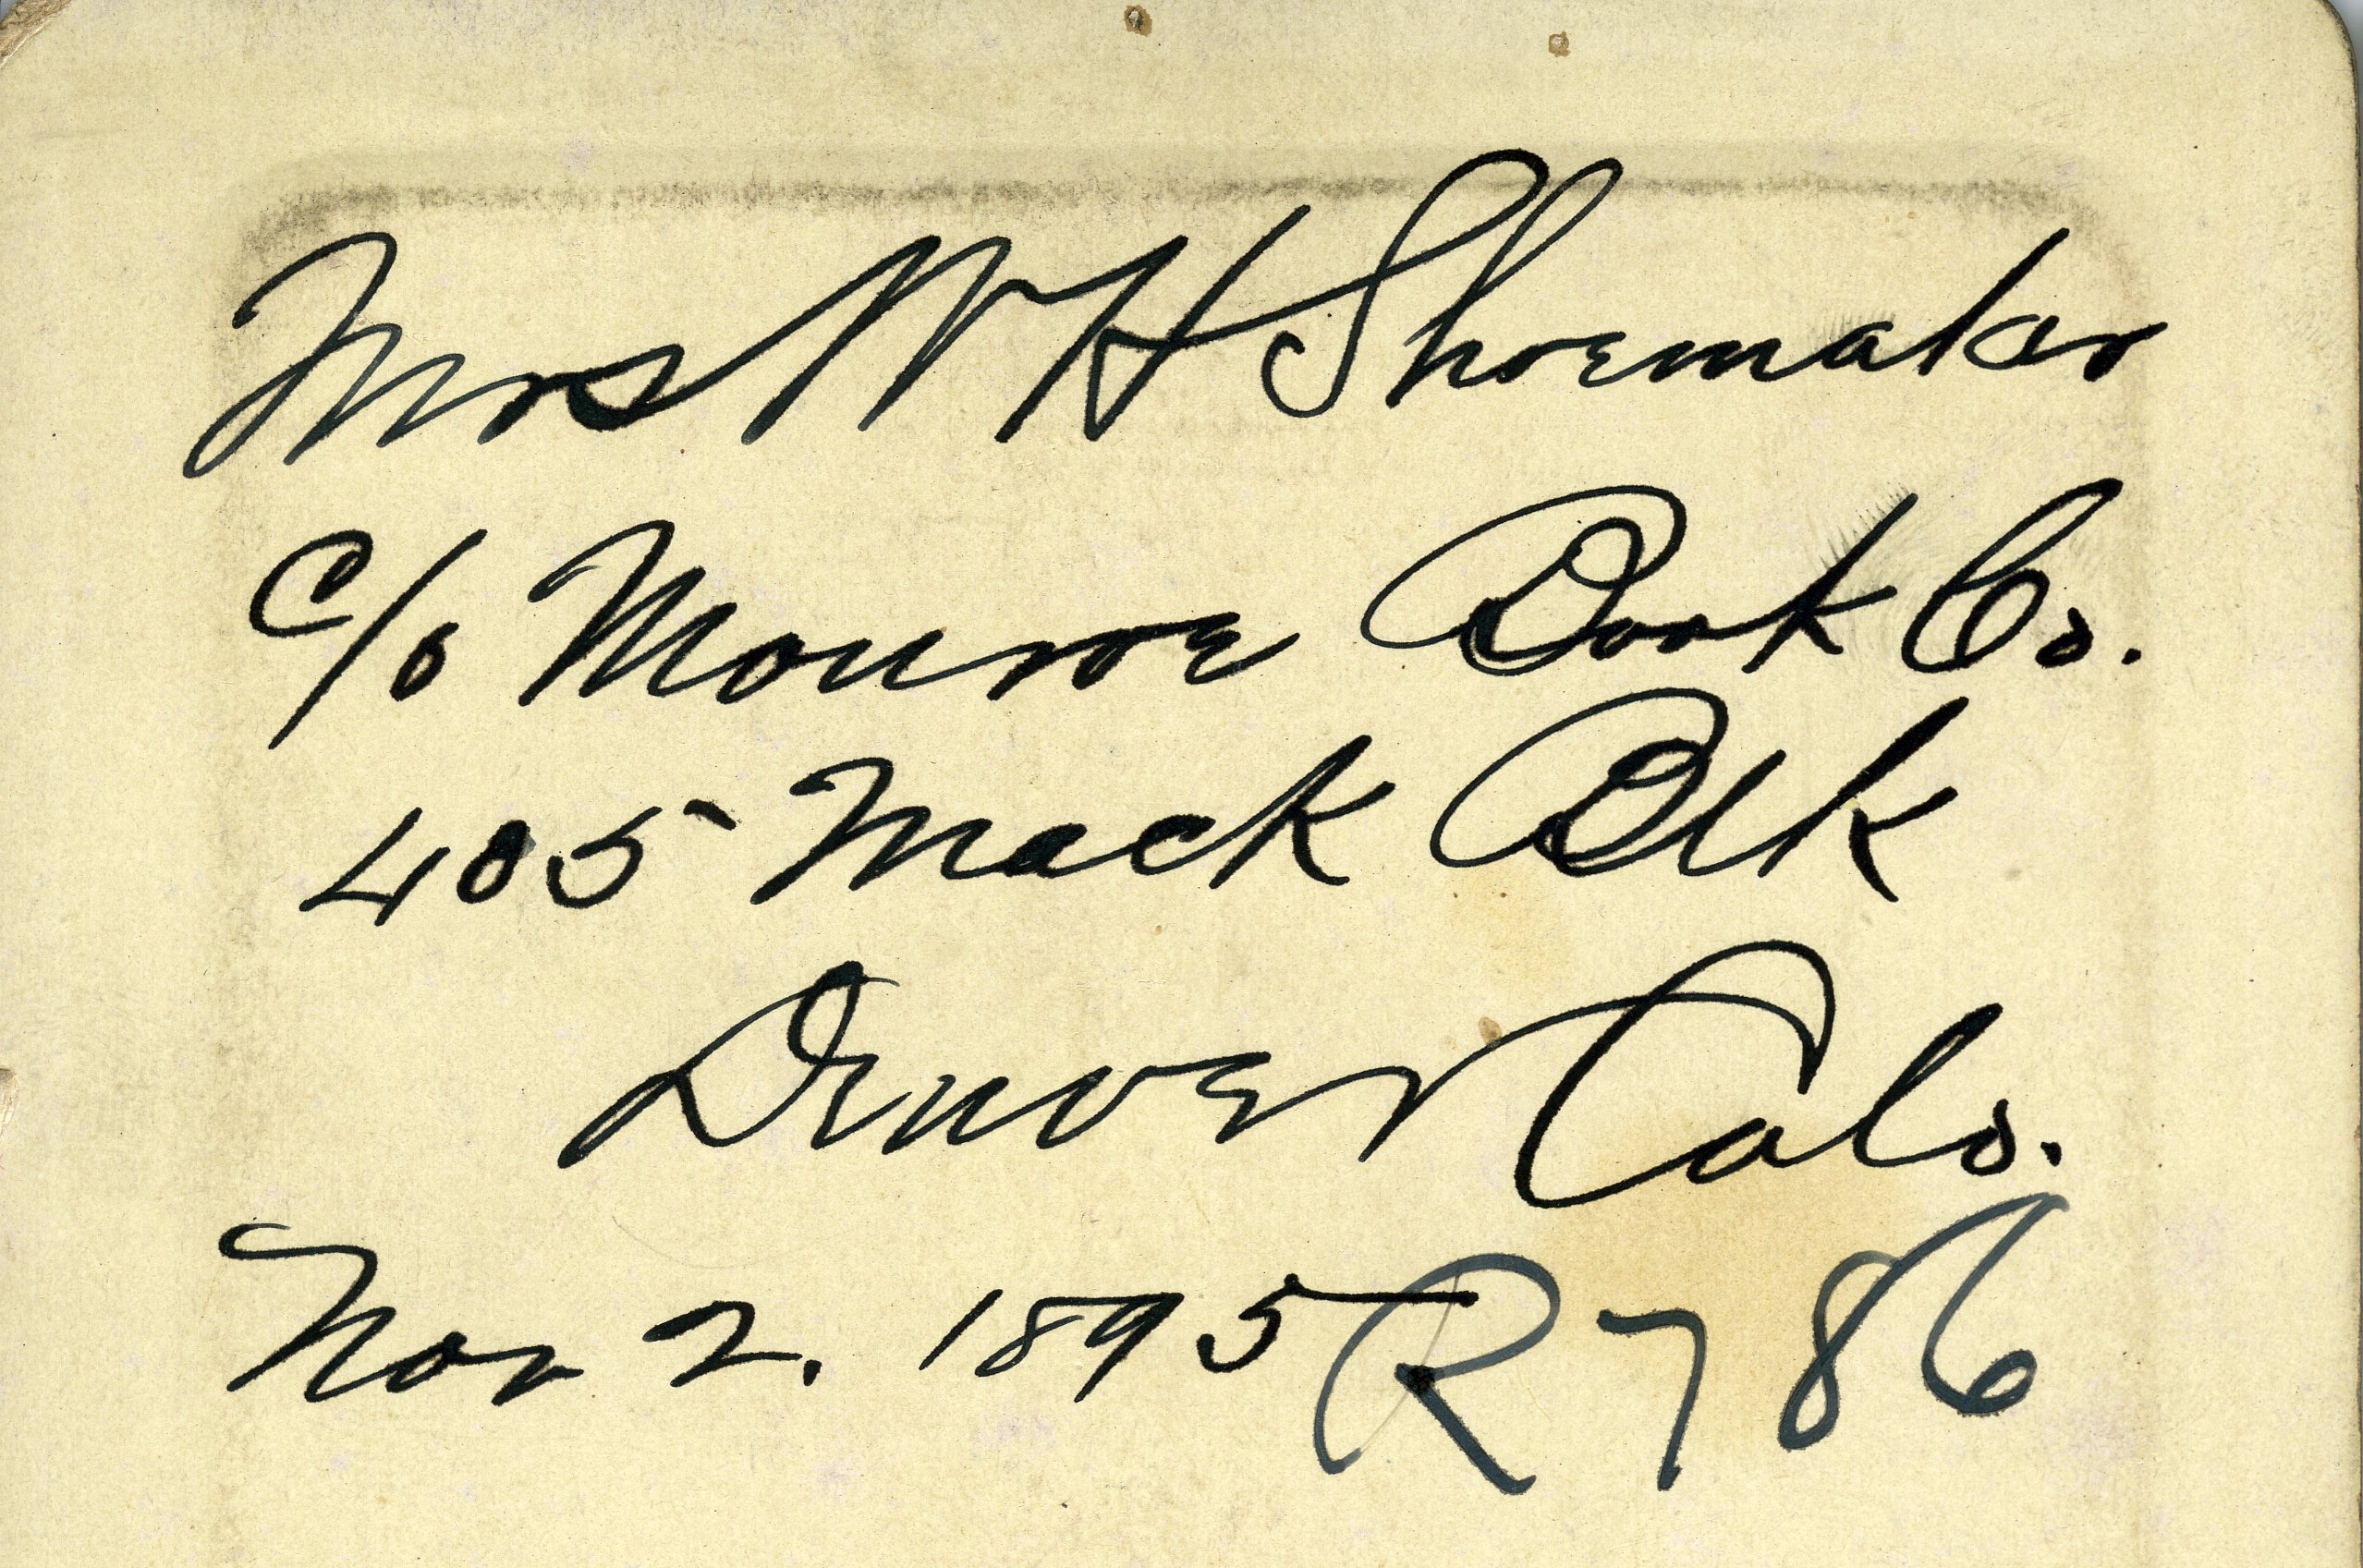 Mrs W H Shoemaker
c/o Monroe Book Co.
405 Mack Blk
Denver Colo.
Nov 2. 1895 R786